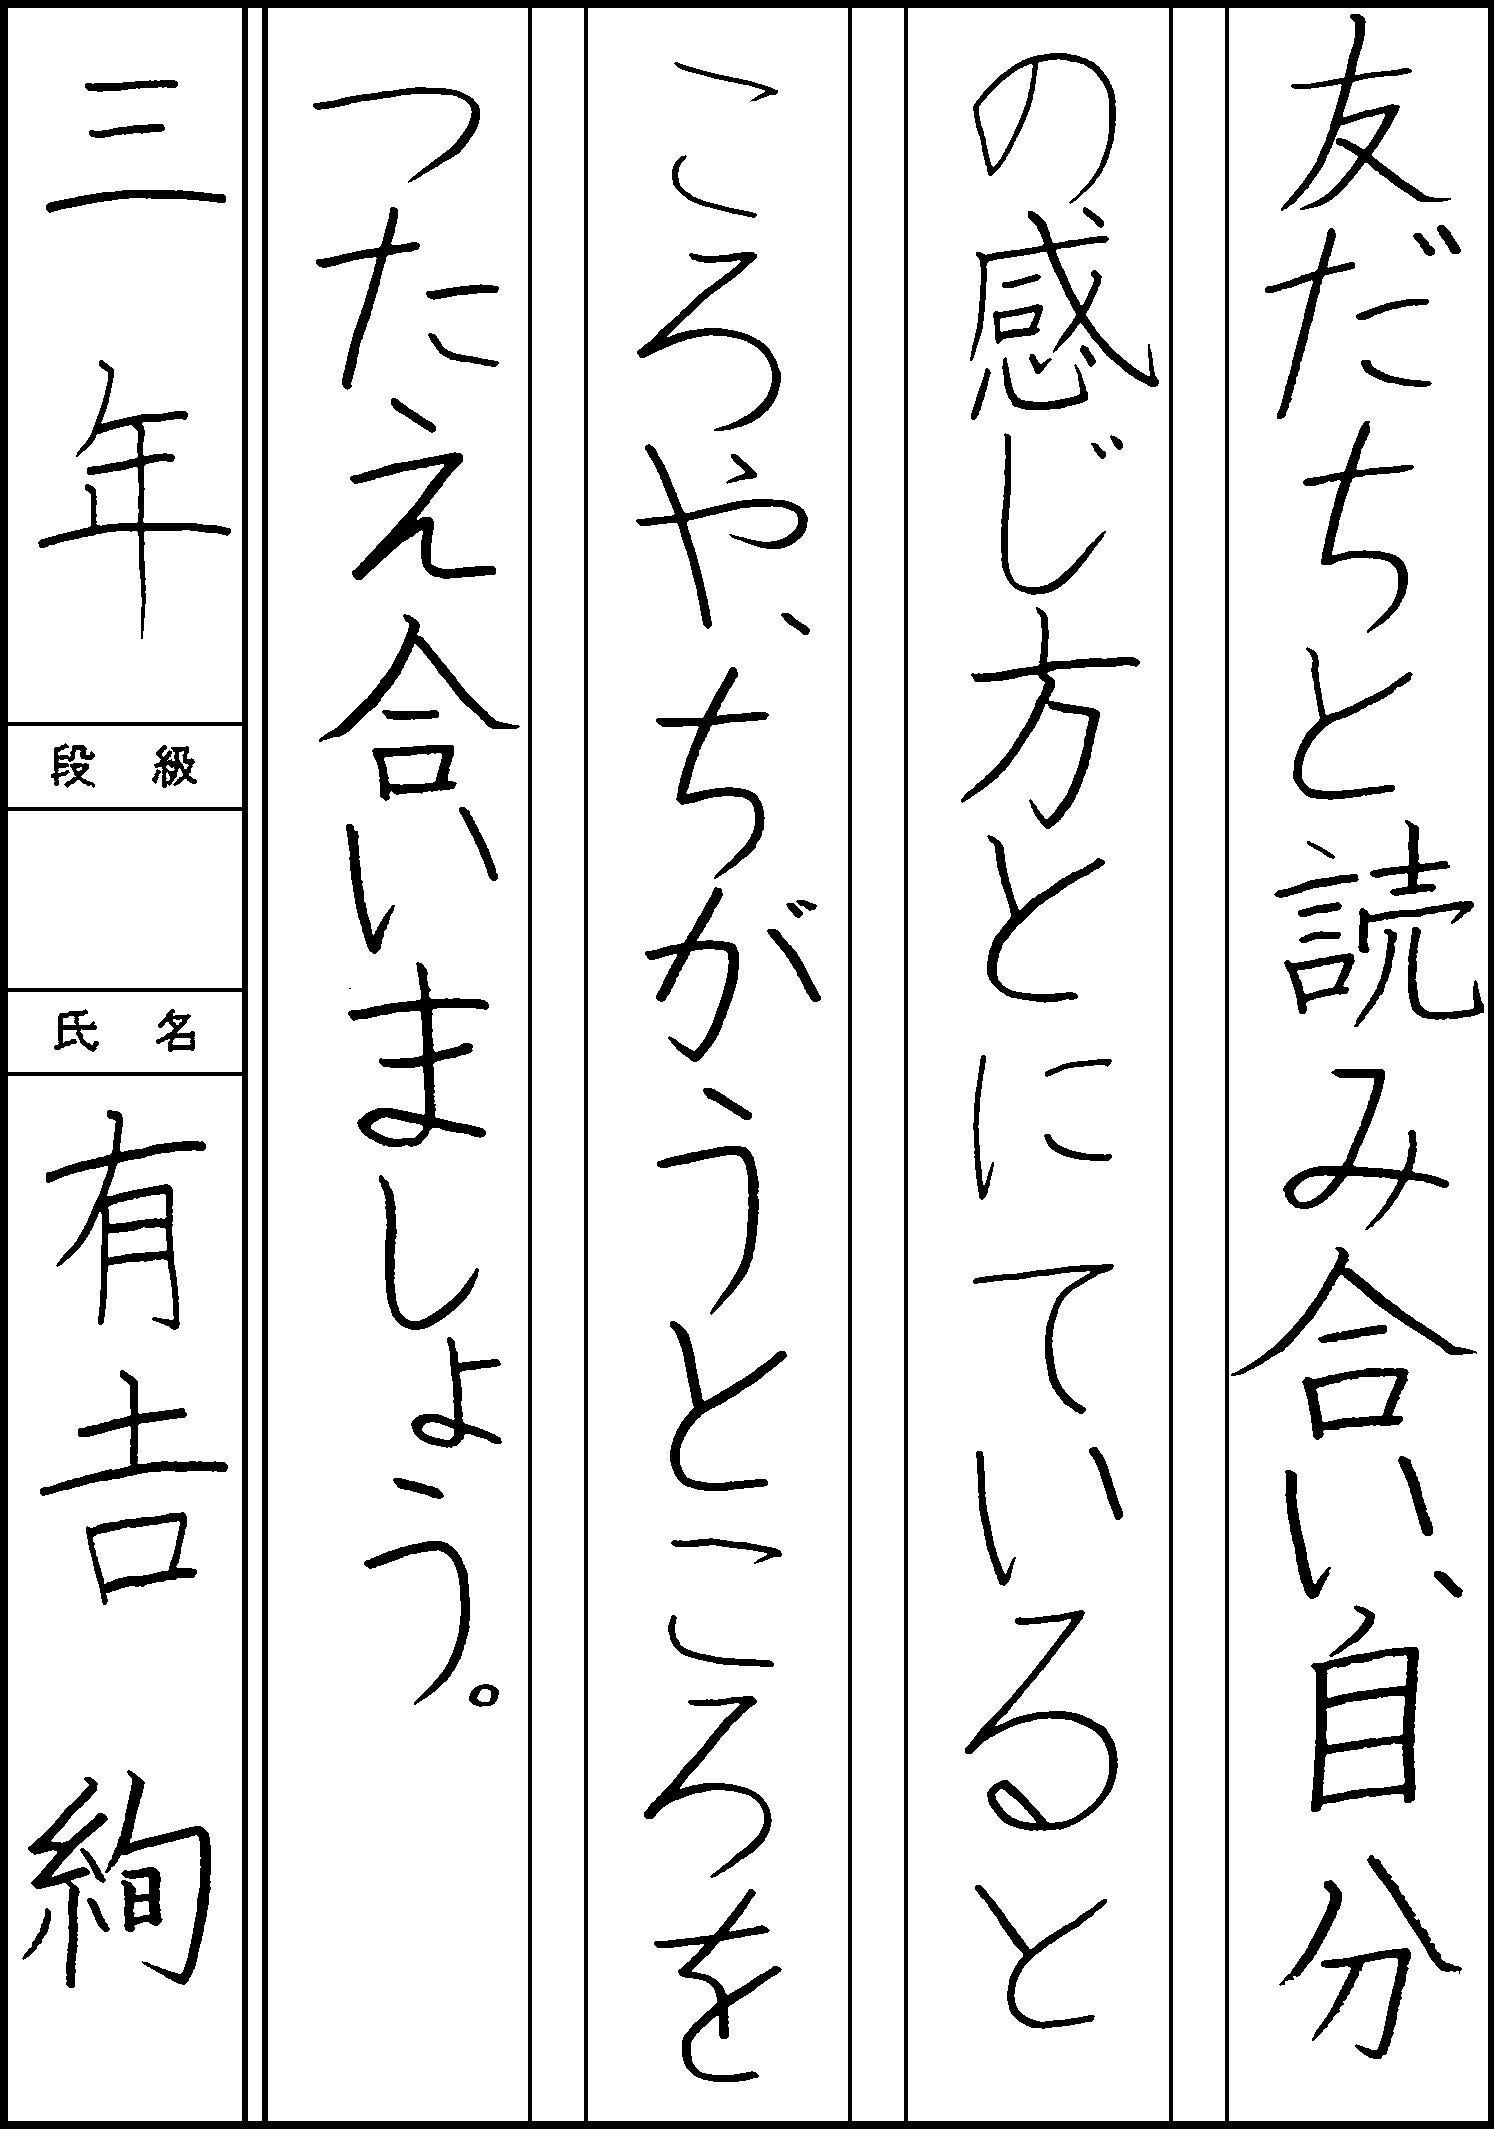 友だちと読み合い、自分
の感じ方とにていると
ころや、ちがうところを
つたえ合いましょう。
三年
段級
氏名
有吉 絢